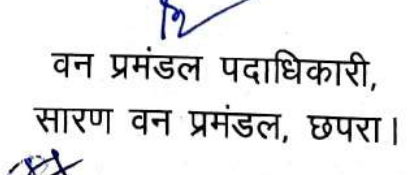 वन प्रमंडल पदाधिकारी,
सारण वन प्रमंडल, छपरा।